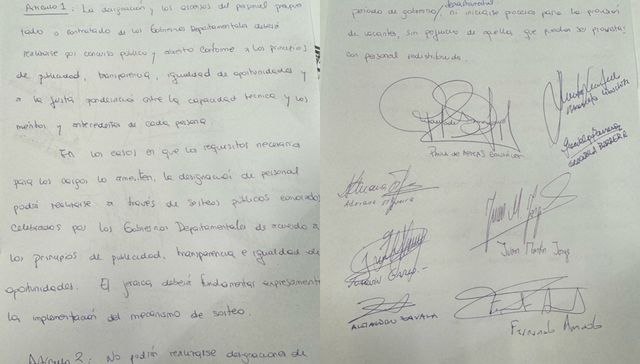 Artículo 1: La designación y los ascensos del personal presupues
tado o contratado de los Gobiernos Departamentales deberá
realizarse por concurso público y abierto conforme a los principios
de publicidad, transparencia, igualdad de oportunidades y
a la justa ponderación entre la capacidad técnica y los
méritos y antecedentes de cada persona
En los casos en que los requisitos necesarios
para los cargos lo ameriten, la designación de personal
podrá realizarse a través de sorteos públicos
celebrados por los Gobiernos Departamentales de acuerdo a
los principios de publicidad, transparencia e igualdad de
oportunidades. El jerarca deberá fundamentar expresamente
la implementación del mecanismo de sorteo.
Artículo 2: No podrán realizarse designaciones de
departamental
período de gobierno, ni iniciarse procesos para la provisión
de vacantes, sin perjuicio de aquellas que puedan ser provistas
con personal redistribuido.
Graciela Barrera
GRACIELA BARRERA
Adriana
Juan Martín Jorge
ALEJANDRO ZAVALA
Fernando Amado